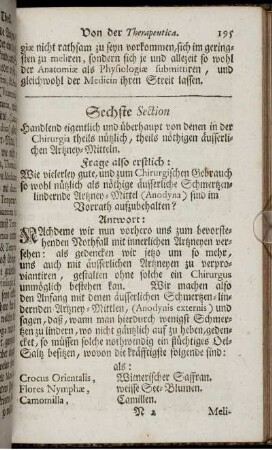 Von der Therapeutica. 195
giæ nicht rathsam zu seyn vorkommen, sich im gering-
sten zu meliren, sondern sich je und allezeit so wohl
der Anatomiæ als Physiologiæ submitiren, und
gleichwohl der Medicin ihren Streit lassen.
Sechste Section
Handlend eigentlich und überhaupt von denen in der
Chirurgia theils nützlich, theils nöthigen äusserli-
chen Artzney-Mitteln.
Frage also erstlich:
Wie vielerley gute, und zum Chirurgischen Gebrauch
so wohl nützlich als nöthige äusserliche Schmertzen-
lindernde Artzney-Mittel (Anodyna) sind im
Vorrath aufzubehalten?
Antwort:
Nachdeme wir nun vorhero uns zum bevorste-
henden Nothfall mit innerlichen Artzneyen ver-
sehen: als gedencken wir jetzo um so mehr,
uns auch mit äusserlichen Artzneyen zu verpro-
viantiren, gestalten ohne solche ein Chirurgus
unmöglich bestehen kan. Wir machen also
den Anfang mit denen äusserlichen Schmertzen-lin-
dernden Artzney-Mittlen, (Anodynis externis) und
sagen, daß, wann man hierdurch wenigst Schmer-
tzen zu lindern, wo nicht gäntzlich auf zu heben, geden-
cket, so müssen solche nothwendig ein flüchtiges Oel-
Saltz besitzen, wovon die kräfftigste folgende sind:
als:
Crocus Orientalis, Wienerischer Saffran.
Flores Nymphæ, weisse See-Blumen.
Camomilla, Camillen.
N 2 Meli-